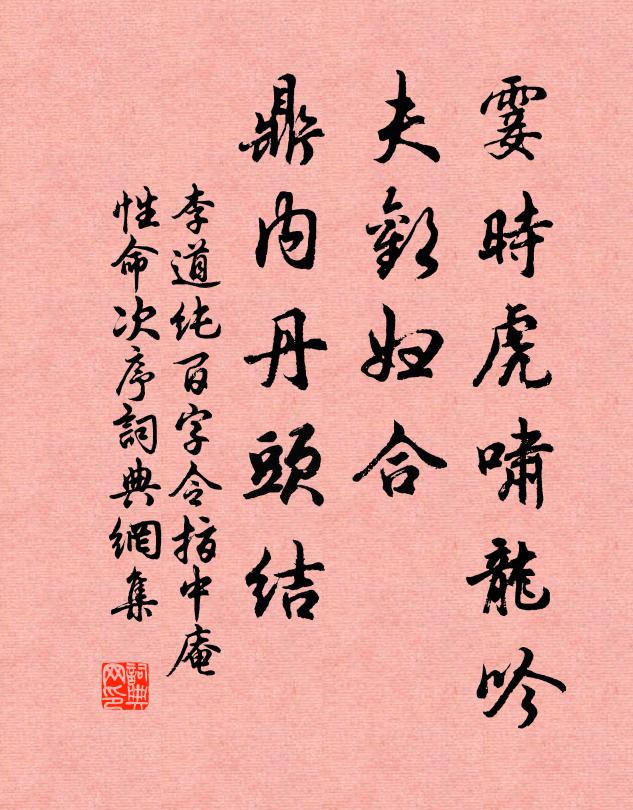 霎時虎嘯龍吟
夫歡婦合
鼎内丹頭結
李道纯百字令指中庵
性命次序詞典網集
詞典網印